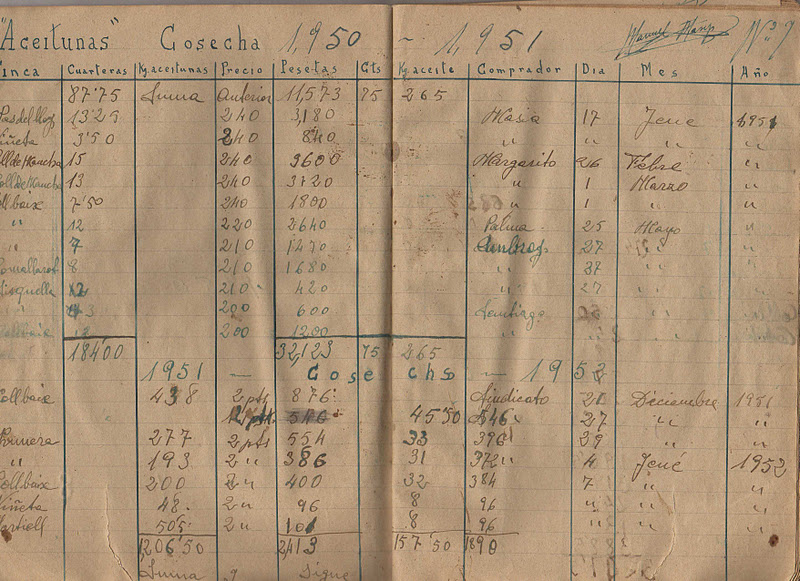 "Aceitunas" Cosecha 1,950 - 1,951 Nº 7
inca Cuarteras Kg. aceitunas Precio Pesetas Cts Kg. aceite Comprador Dia Mes Año
87'75 Suma Anterior 11,573 75 265
13'25 240 3,180 Masia 17 Jene 1951
Viñeta 3'50 240 840 " " " "
15 240 3600 Margarito 26 Febre "
13 240 3120 " 1 Marzo "
ollbaix 7'50 240 1800 " 1 " "
" 12 220 2640 Palma 25 Mayo "
" 7 210 1470 Ambros 27 " "
8 210 1680 " 27 " "
2 210 420 " 27 " "
3 200 600 Santiago " "
200 1200 " " " "
184'00 32,123 75 265
1951 - Cosecha - 1952
Collbaix 438 2 pts 876 Sindicato 21 Deciembre 1951
12 pts 546 45'50 546 27 " "
Primera 277 2 pts 554 33 396 29 " "
" 193 2 " 386 31 372 " 4 Jené 1952
Collbaix 200 2 " 400 32 384 7 " "
Viñeta 48 2 " 96 8 96 " " "
50'5 2 " 101 8 96 " " "
1,206'50 2,413 157'50 1890
Suma y Sigue